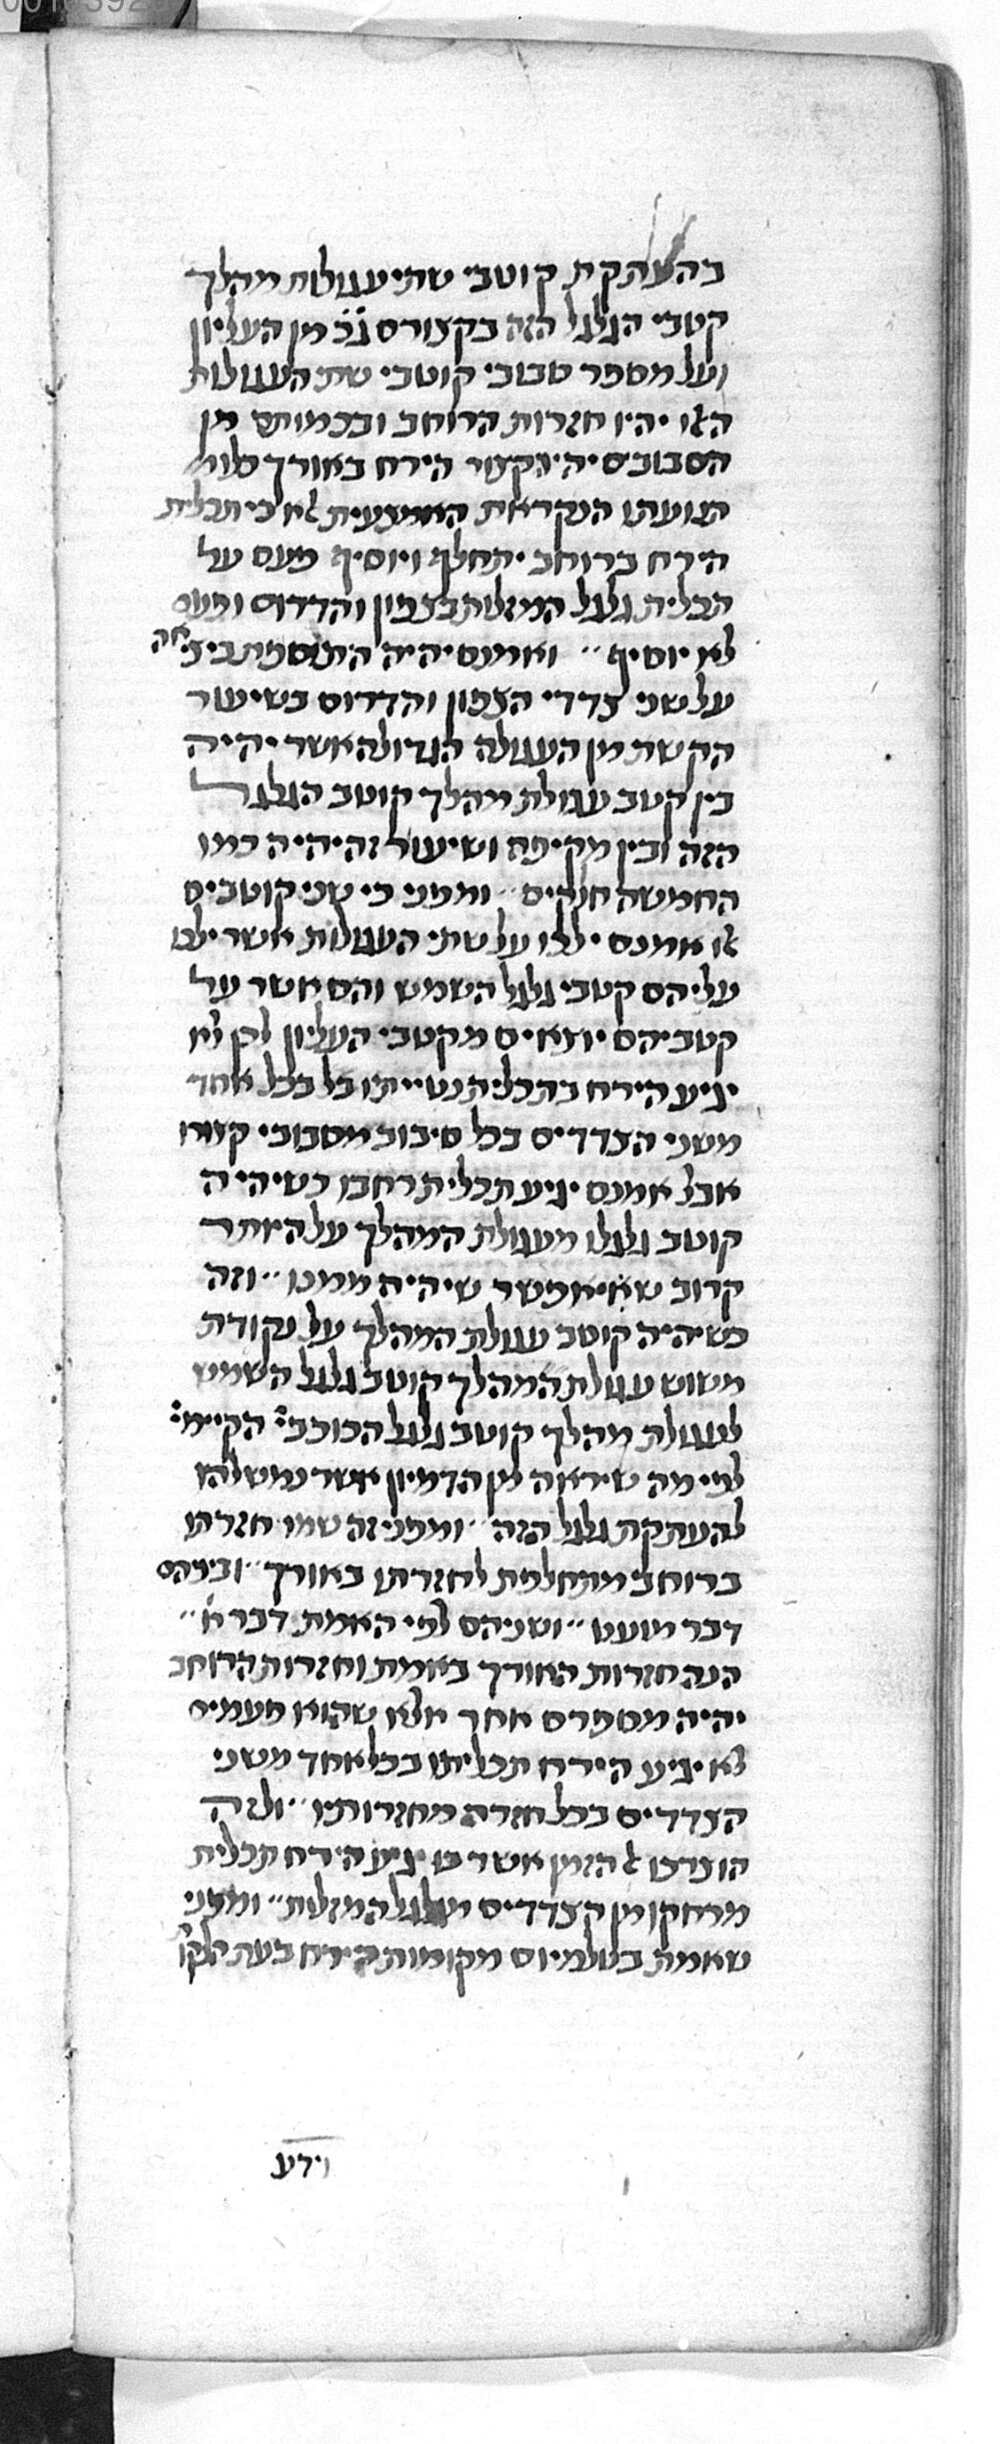 בהעתקת קוטבי שתי עגולות מהלך
קטבי הגלגל הזה בקצורם ג״כ מן העליון
ועל מספר סבובי קוטבי שתי העגולות
האו יהיו חזרות הרוחב ובכמותם מן
הסבובים יהיה קצור הירח באורך
תנועתו הנקראת האמצעית לא כי תכלית
הירח ברוחב יתחלף ויוסיף פעם על
תכלית גלגל המזלות בצפון והדרום ופעם
לא יוסיף ״ ואמנם יהיה התוספת
על שני צדדי הצפון והדרום בשיעור
הקשת מן העגולה הגדולה אשר יהיה
בין קטב עגולת מהלך קוטב הגלגל
הזה ובין מקיפה ושיעור זה יהיה כמו
החמשה חלקים ״ ומפני כי שני קוטבים
או אמנם ילכו על שתי העגולות אשר ילכו
עליהם קטבי גלגל השמש והם אשר על
קטביהם יוצאים מקטבי העליון לכן לא
יגיע הירח בתכלית נטייתו בכל אחד
משני הצדדים בכל סיבוב מסבובי קצורו
אבל אמנם יגיע תכלית רחבו כשיהיה
קוטב גלגלו מעגולת המהלך על היותר
קרוב שאיאפשר שיהיה ממנו ״ וזה
כשיהיה קוטב עגולת המהלך על נקודת
משוש עגולת המהלך קוטב גלגל השמש
לעגולת מהלך קוטב גלגל הכוכבי׳ הקיימי׳
לפי מה שיראה מן הדמיון אשר נמשלהו
להעתקת גלגל הזה ״ ומפני זה שמו חזרתו
ברוחב מתחלפת לחזרתו באורך ״ וביניהם
דבר מועט ״ ושניהם לפי האמת דבר א׳ ״
הנה חזרות האורך באמת וחזרות הרוחב
יהיה מספרם אחד אלא שהוא פעמים
לא יגיע הירח תכליתו בכל אחד משני
הצדדים בכל חזרה מחזרותיו ״ ולזה
הוצרכו לזמן אשר בו יגיע הירח תכלית
מרחקו מן הצדדים מגלגל המזלות ״ ומפני
שאמת בטלמיוס מקומות הירח בעת הלקו׳
וידע